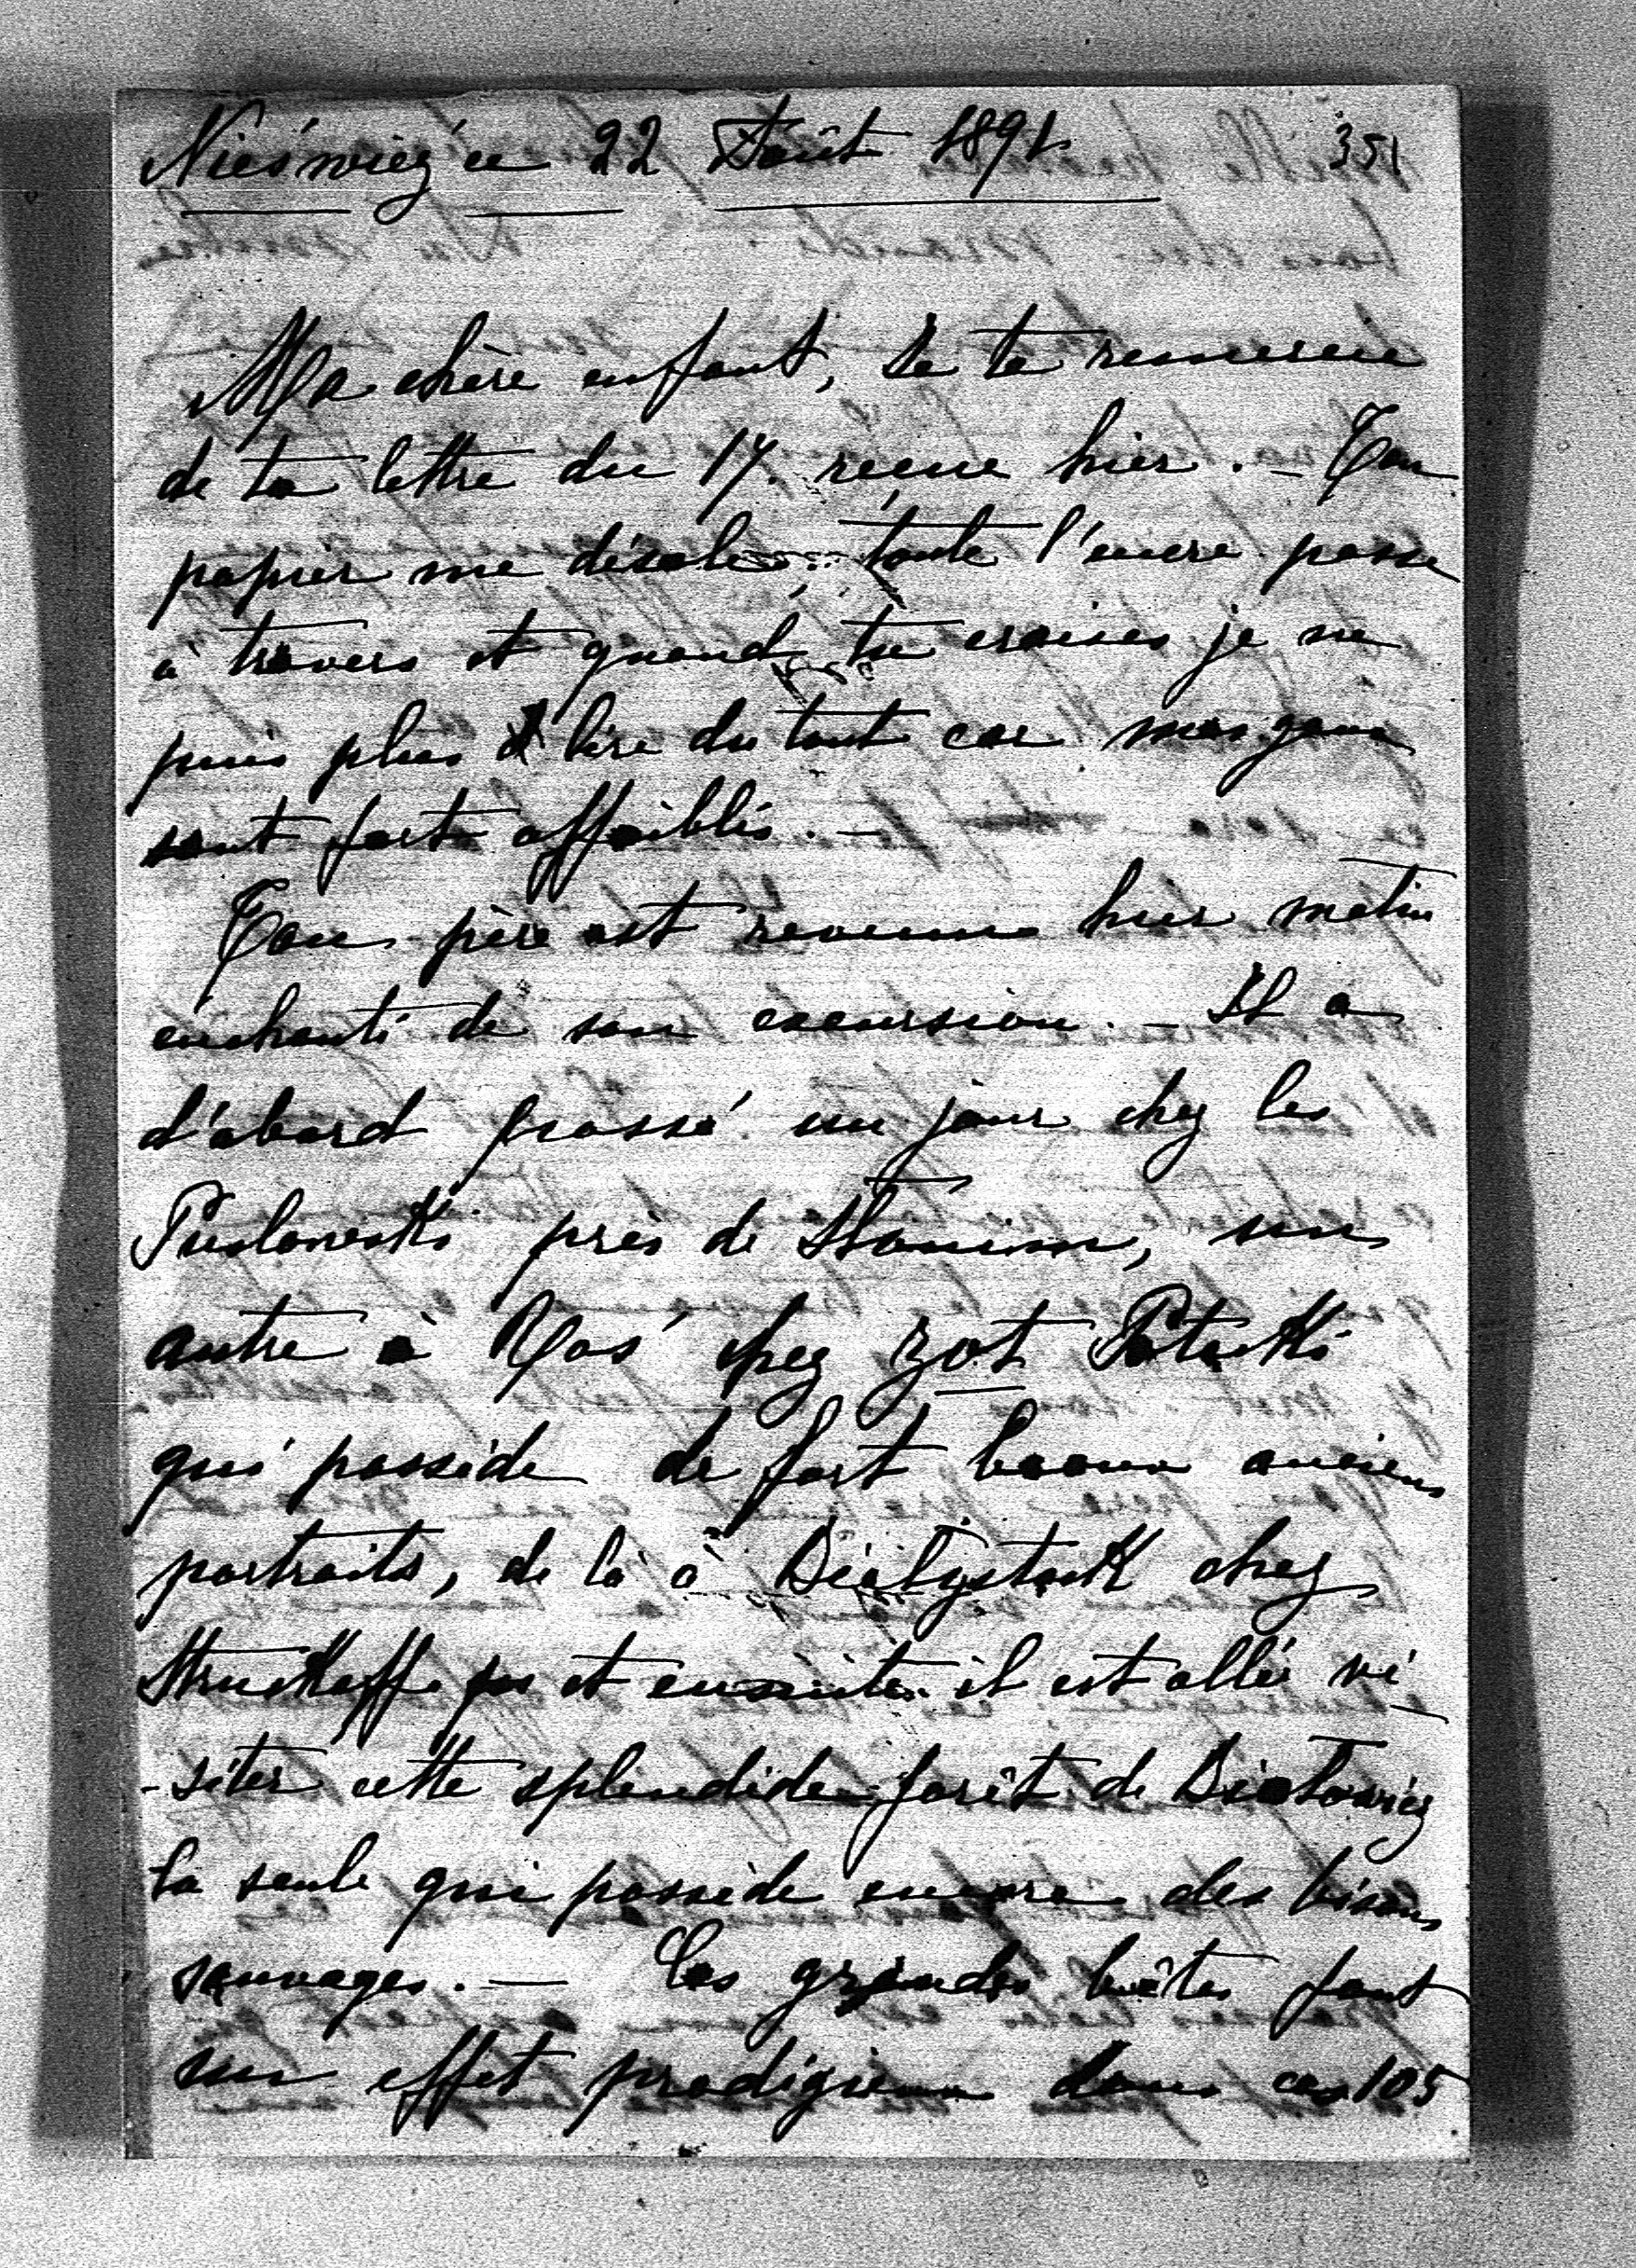 Nieśwież ce 22 Août 1891. 351
Ma chère enfant, Je te remercie
de ta lettre du 17. recue hier. - Ton
papier me désole, toute l'encre passe
à travers et quand tu croises je ne
puis plus lire du tout car mes yeux
sont fort affaiblis. -
Ton père est revenu hier matin
enchanté de son excursion. - Il a
d'abord passé un jour chez les
Pusłowski près de Słonim, un
autre à Roś chez Potocki
qui possède de fort beaux anciens
portraits, de là à Białystock chez
Struckoff et ensuite il est allé vi-
-siter cette splendide forêt de Białowież
la seule qui possède encore des bisons
sauvages. - Ces grandes bêtes font
un effet prodigieux dans ces 105